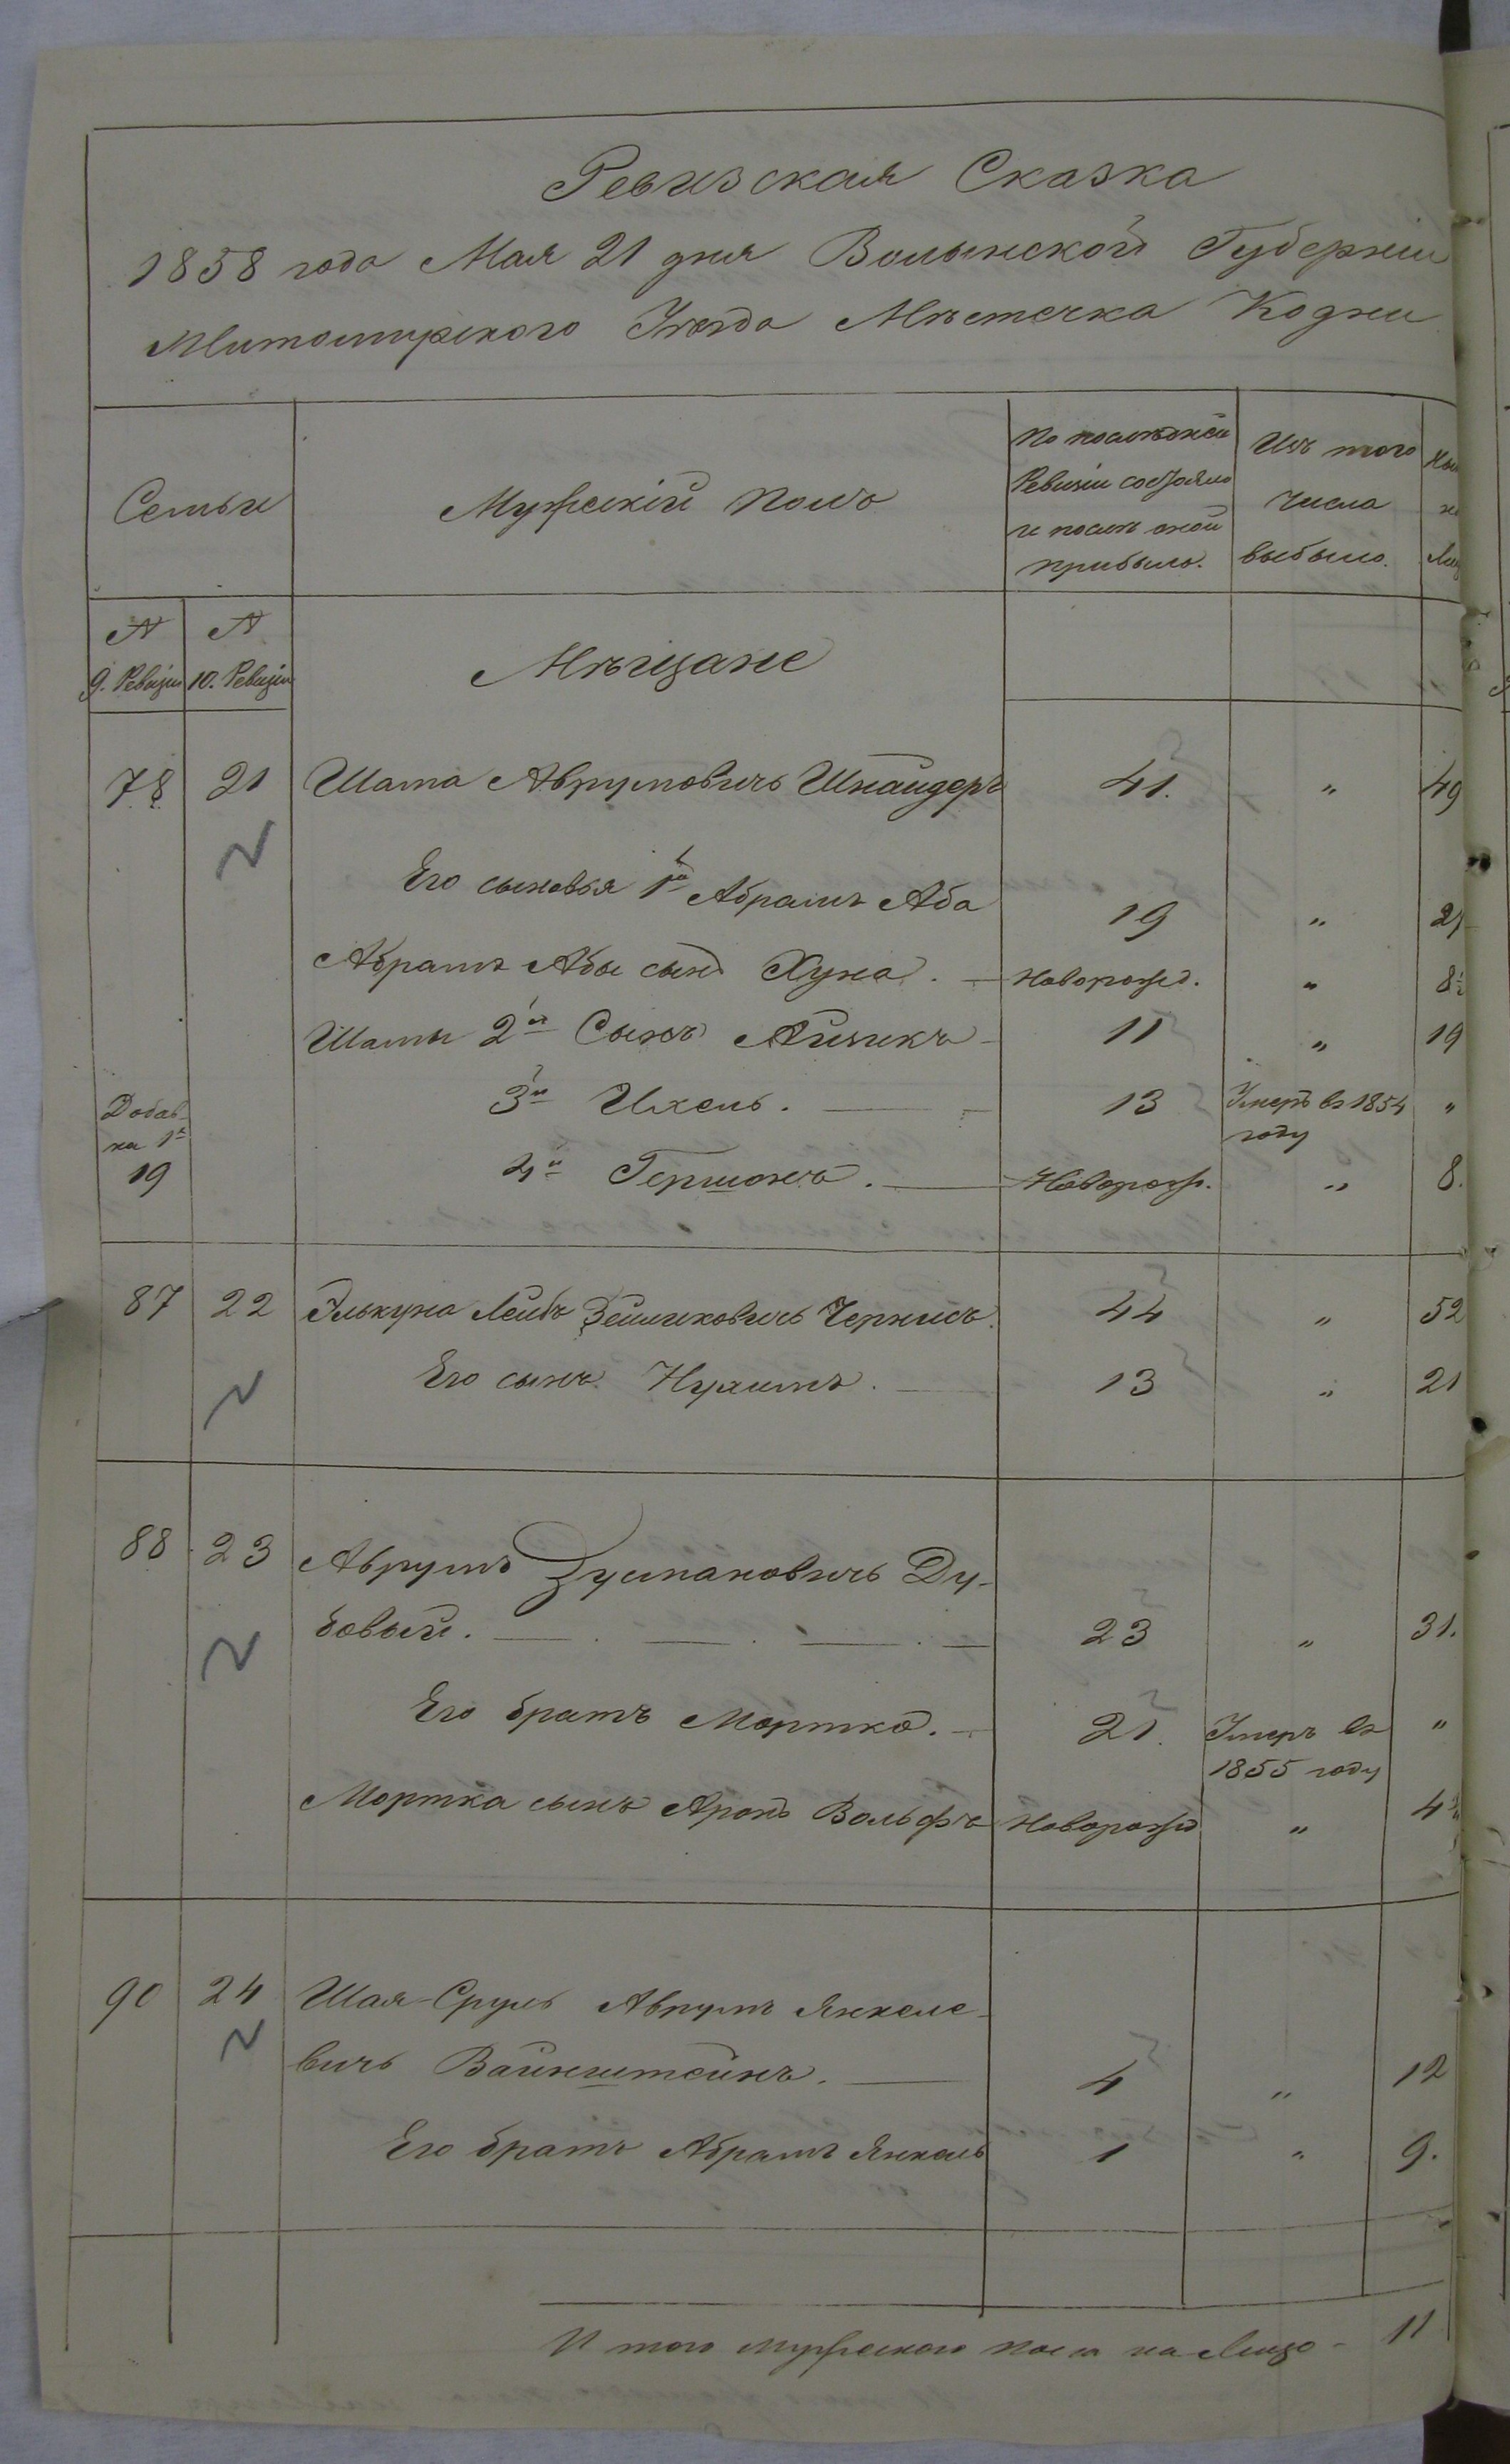 Ревизская Сказка
1858 года Мая 21 дня Волынской Губерніи
Житомирского Уезда Мѣстечка Кодни
Семьи
Мужескій полъ
По послѣдней Ревизіи состояло и послѣ оной прибыло.
Изъ того числа выбыло.
№ 9. Ревизіи
№ 10. Ревизіи
Мѣщане
78 21 Шама Аврумовичъ Шнайдеръ 41. " 49
Его сыновья 1й Абрамъ Аба 19 " 27
Абрамъ Абы сынъ Хуна. Новорожд. " 8½
Шамы 2й Сынъ Айзикъ 11 " 19
3й Ихель. 13 Умеръ въ 1854 году "
Добавка 1я 19
4й Гершонъ. Новорожд. " 8.
87 22 Элькуна Лейбъ Зейликовичъ Чернисъ. 44 " 52
Его сынъ Нухимъ. 13 " 21
88 23 Аврумъ Зусмановичъ Ду-
бовый. 23 " 31.
Его братъ Мортко. 21. Умеръ въ 1855 году "
Мортка сынъ Аронъ Вольфъ Новорожд " 4
90 24 Шая-Сруль Аврумъ Янкеле-
вичъ Вайнштейнъ. 4 " 12
Его братъ Абрамъ Янкель 1 " 9.
Итого мужеского пола на лицо 11